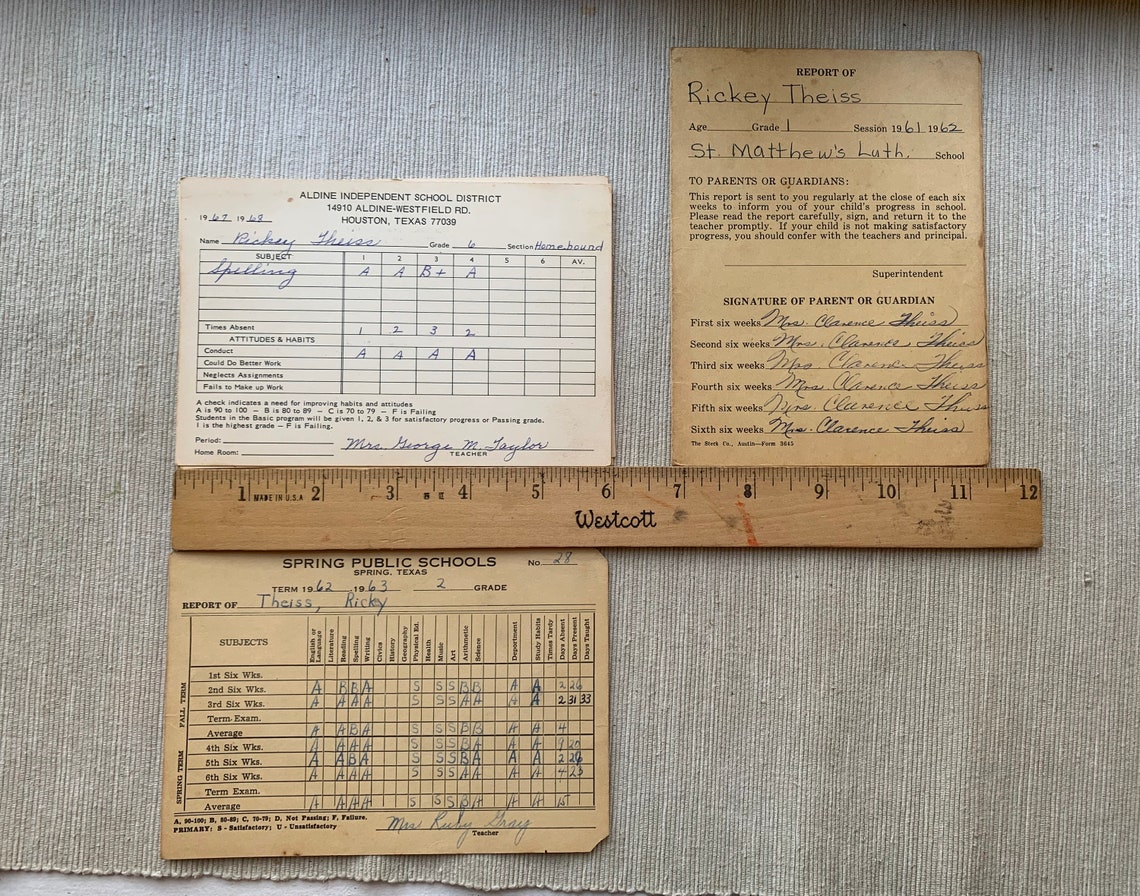 ALDINE INDEPENDENT SCHOOL DISTRICT
14910 ALDINE-WESTFIELD RD.
1967 1968 HOUSTON, TEXAS 77039
Name Rickey Theiss Grade 6 Section Homebound
SUBJECT 1 2 3 4 5 6 AV.
Spelling A A B+ A
Times Absent 1 2 3 2
ATTITUDES & HABITS
Conduct A A A A
Could Do Better Work
Neglects Assignments
Fails to Make up Work
A check indicates a need for improving habits and attitudes
A is 90 to 100 — B is 80 to 89 — C is 70 to 79 — F is Failing
Students in the Basic program will be given 1, 2, & 3 for satisfactory progress or Passing grade.
1 is the highest grade — F is Failing.
Period:
Mrs. George M. Taylor
Home Room: TEACHER
REPORT OF
Rickey Theiss
Age Grade 1 Session 1961 1962
St. Matthew's Luth. School
TO PARENTS OR GUARDIANS:
This report is sent to you regularly at the close of each six
weeks to inform you of your child's progress in school.
Please read the report carefully, sign, and return it to the
teacher promptly. If your child is not making satisfactory
progress, you should confer with the teachers and principal.
Superintendent
SIGNATURE OF PARENT OR GUARDIAN
First six weeks Mrs. Clarence Theiss
Second six weeks Mrs. Clarence Theiss
Third six weeks Mrs. Clarence Theiss
Fourth six weeks Mrs. Clarence Theiss
Fifth six weeks Mrs. Clarence Theiss
Sixth six weeks Mrs. Clarence Theiss
The Steck Co., Austin—Form 3645
1 MADE IN U.S.A 2 3 4 5 6 7 8 9 10 11 12
Westcott
SPRING PUBLIC SCHOOLS No. 28
SPRING, TEXAS
TERM 1962 1963 2 GRADE
REPORT OF Theiss, Ricky
SUBJECTS English or Language Literature Reading Spelling Writing Civics History Geography Physical Ed. Health Music Art Arithmetic Science Department Study Habits Times Tardy Days Absent Days Present Days Taught
FALL TERM
1st Six Wks.
2nd Six Wks. A B B A S S S B B A A 2 26
3rd Six Wks. A A A A S S S A A A A 2 31 33
Term Exam.
Average A A B A S S S B B A A 4
SPRING TERM
4th Six Wks. A A A A S S S B A A A 9 20
5th Six Wks. A A B A S S S B A A A 2 26
6th Six Wks. A A A A S S S A A A A 4 23
Term Exam.
Average A A A A S S S B A A A 15
A, 90-100; B, 80-89; C, 70-79; D, Not Passing; F, Failure.
PRIMARY: S - Satisfactory; U - Unsatisfactory
Mrs Ruby Gray
Teacher